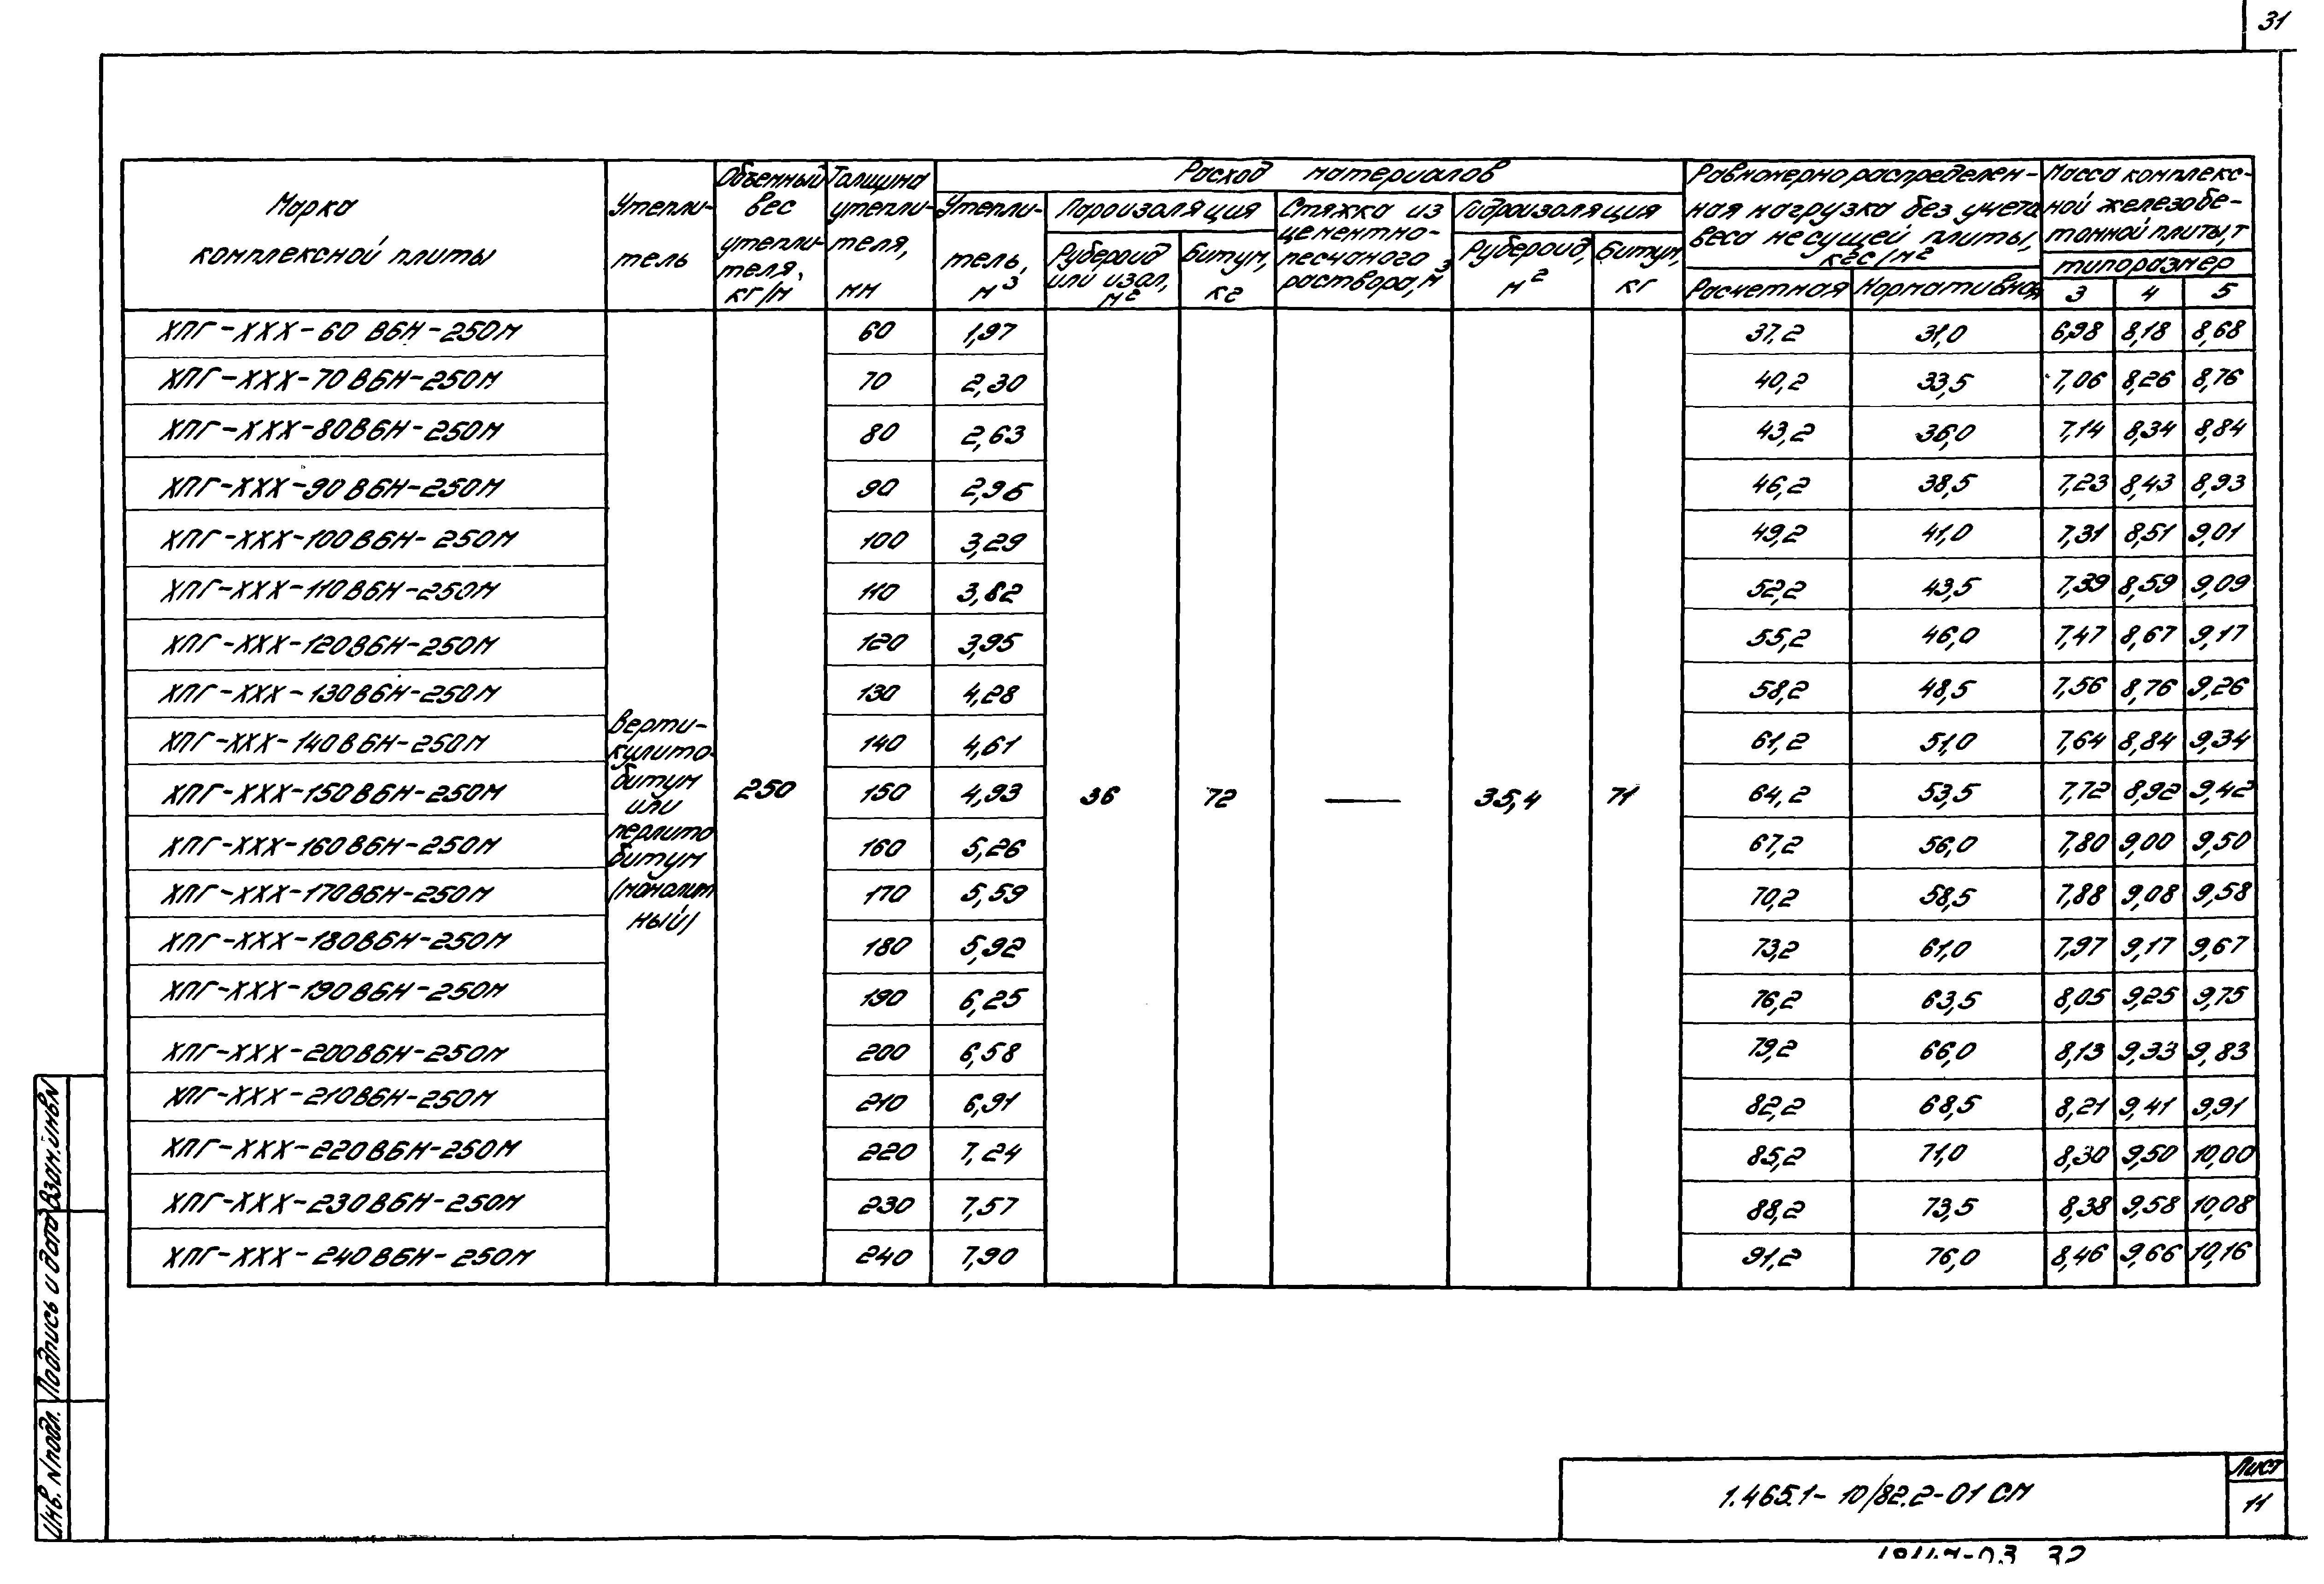 31
Марка комплексной плиты
Утепли-тель
Объемный вес утепли-теля, кг/м
Толщина утепли-теля, мм
Расход материалов
Утепли-тель, м³
Пароизоляция
Рубероид или изол, м²
Битум, кг
Стяжка из цементно-песчаного раствора, м³
Гидроизоляция
Рубероид, м²
Битум, кг
Равномерно распределен-ная нагрузка без учета веса несущей плиты, кгс/м²
Расчетная
Нормативная
Масса комплекс-ной железобе-тонной плиты, т
типоразмер
3 4 5
ХПГ-ХХХ-60 ВБН-250М 60 1,97 37,2 31,0 6,98 8,18 8,68
ХПГ-ХХХ-70ВБН-250М 70 2,30 40,2 33,5 7,06 8,26 8,76
ХПГ-ХХХ-80ВБН-250М 80 2,63 43,2 36,0 7,14 8,34 8,84
ХПГ-ХХХ-90ВБН-250М 90 2,96 46,2 38,5 7,23 8,43 8,93
ХПГ-ХХХ-100ВБН-250М 100 3,29 49,2 41,0 7,31 8,51 9,01
ХПГ-ХХХ-110ВБН-250М 110 3,62 52,2 43,5 7,39 8,59 9,09
ХПГ-ХХХ-120ВБН-250М 120 3,95 55,2 46,0 7,47 8,67 9,17
ХПГ-ХХХ-130ВБН-250М 130 4,28 58,2 48,5 7,56 8,76 9,26
ХПГ-ХХХ-140ВБН-250М 140 4,61 61,2 51,0 7,64 8,84 9,34
ХПГ-ХХХ-150ВБН-250М 150 4,93 64,2 53,5 7,72 8,92 9,42
ХПГ-ХХХ-160ВБН-250М 160 5,26 67,2 56,0 7,80 9,00 9,50
ХПГ-ХХХ-170ВБН-250М 170 5,59 70,2 58,5 7,88 9,08 9,58
ХПГ-ХХХ-180ВБН-250М 180 5,92 73,2 61,0 7,97 9,17 9,67
ХПГ-ХХХ-190ВБН-250М 190 6,25 76,2 63,5 8,05 9,25 9,75
ХПГ-ХХХ-200ВБН-250М 200 6,58 79,2 66,0 8,13 9,33 9,83
ХПГ-ХХХ-210ВБН-250М 210 6,91 82,2 68,5 8,21 9,41 9,91
ХПГ-ХХХ-220ВБН-250М 220 7,24 85,2 71,0 8,30 9,50 10,00
ХПГ-ХХХ-230ВБН-250М 230 7,57 88,2 73,5 8,38 9,58 10,08
ХПГ-ХХХ-240ВБН-250М 240 7,90 91,2 76,0 8,46 9,66 10,16
Верти-
кулито-
битум
или
перлито
битум
(монолит
ный)
250
36 72 — 35,4 71
Инв. N подл. Подпись и дата Взам. инв N
1.465.1-10/82.2-01 СМ
Лист
11
32